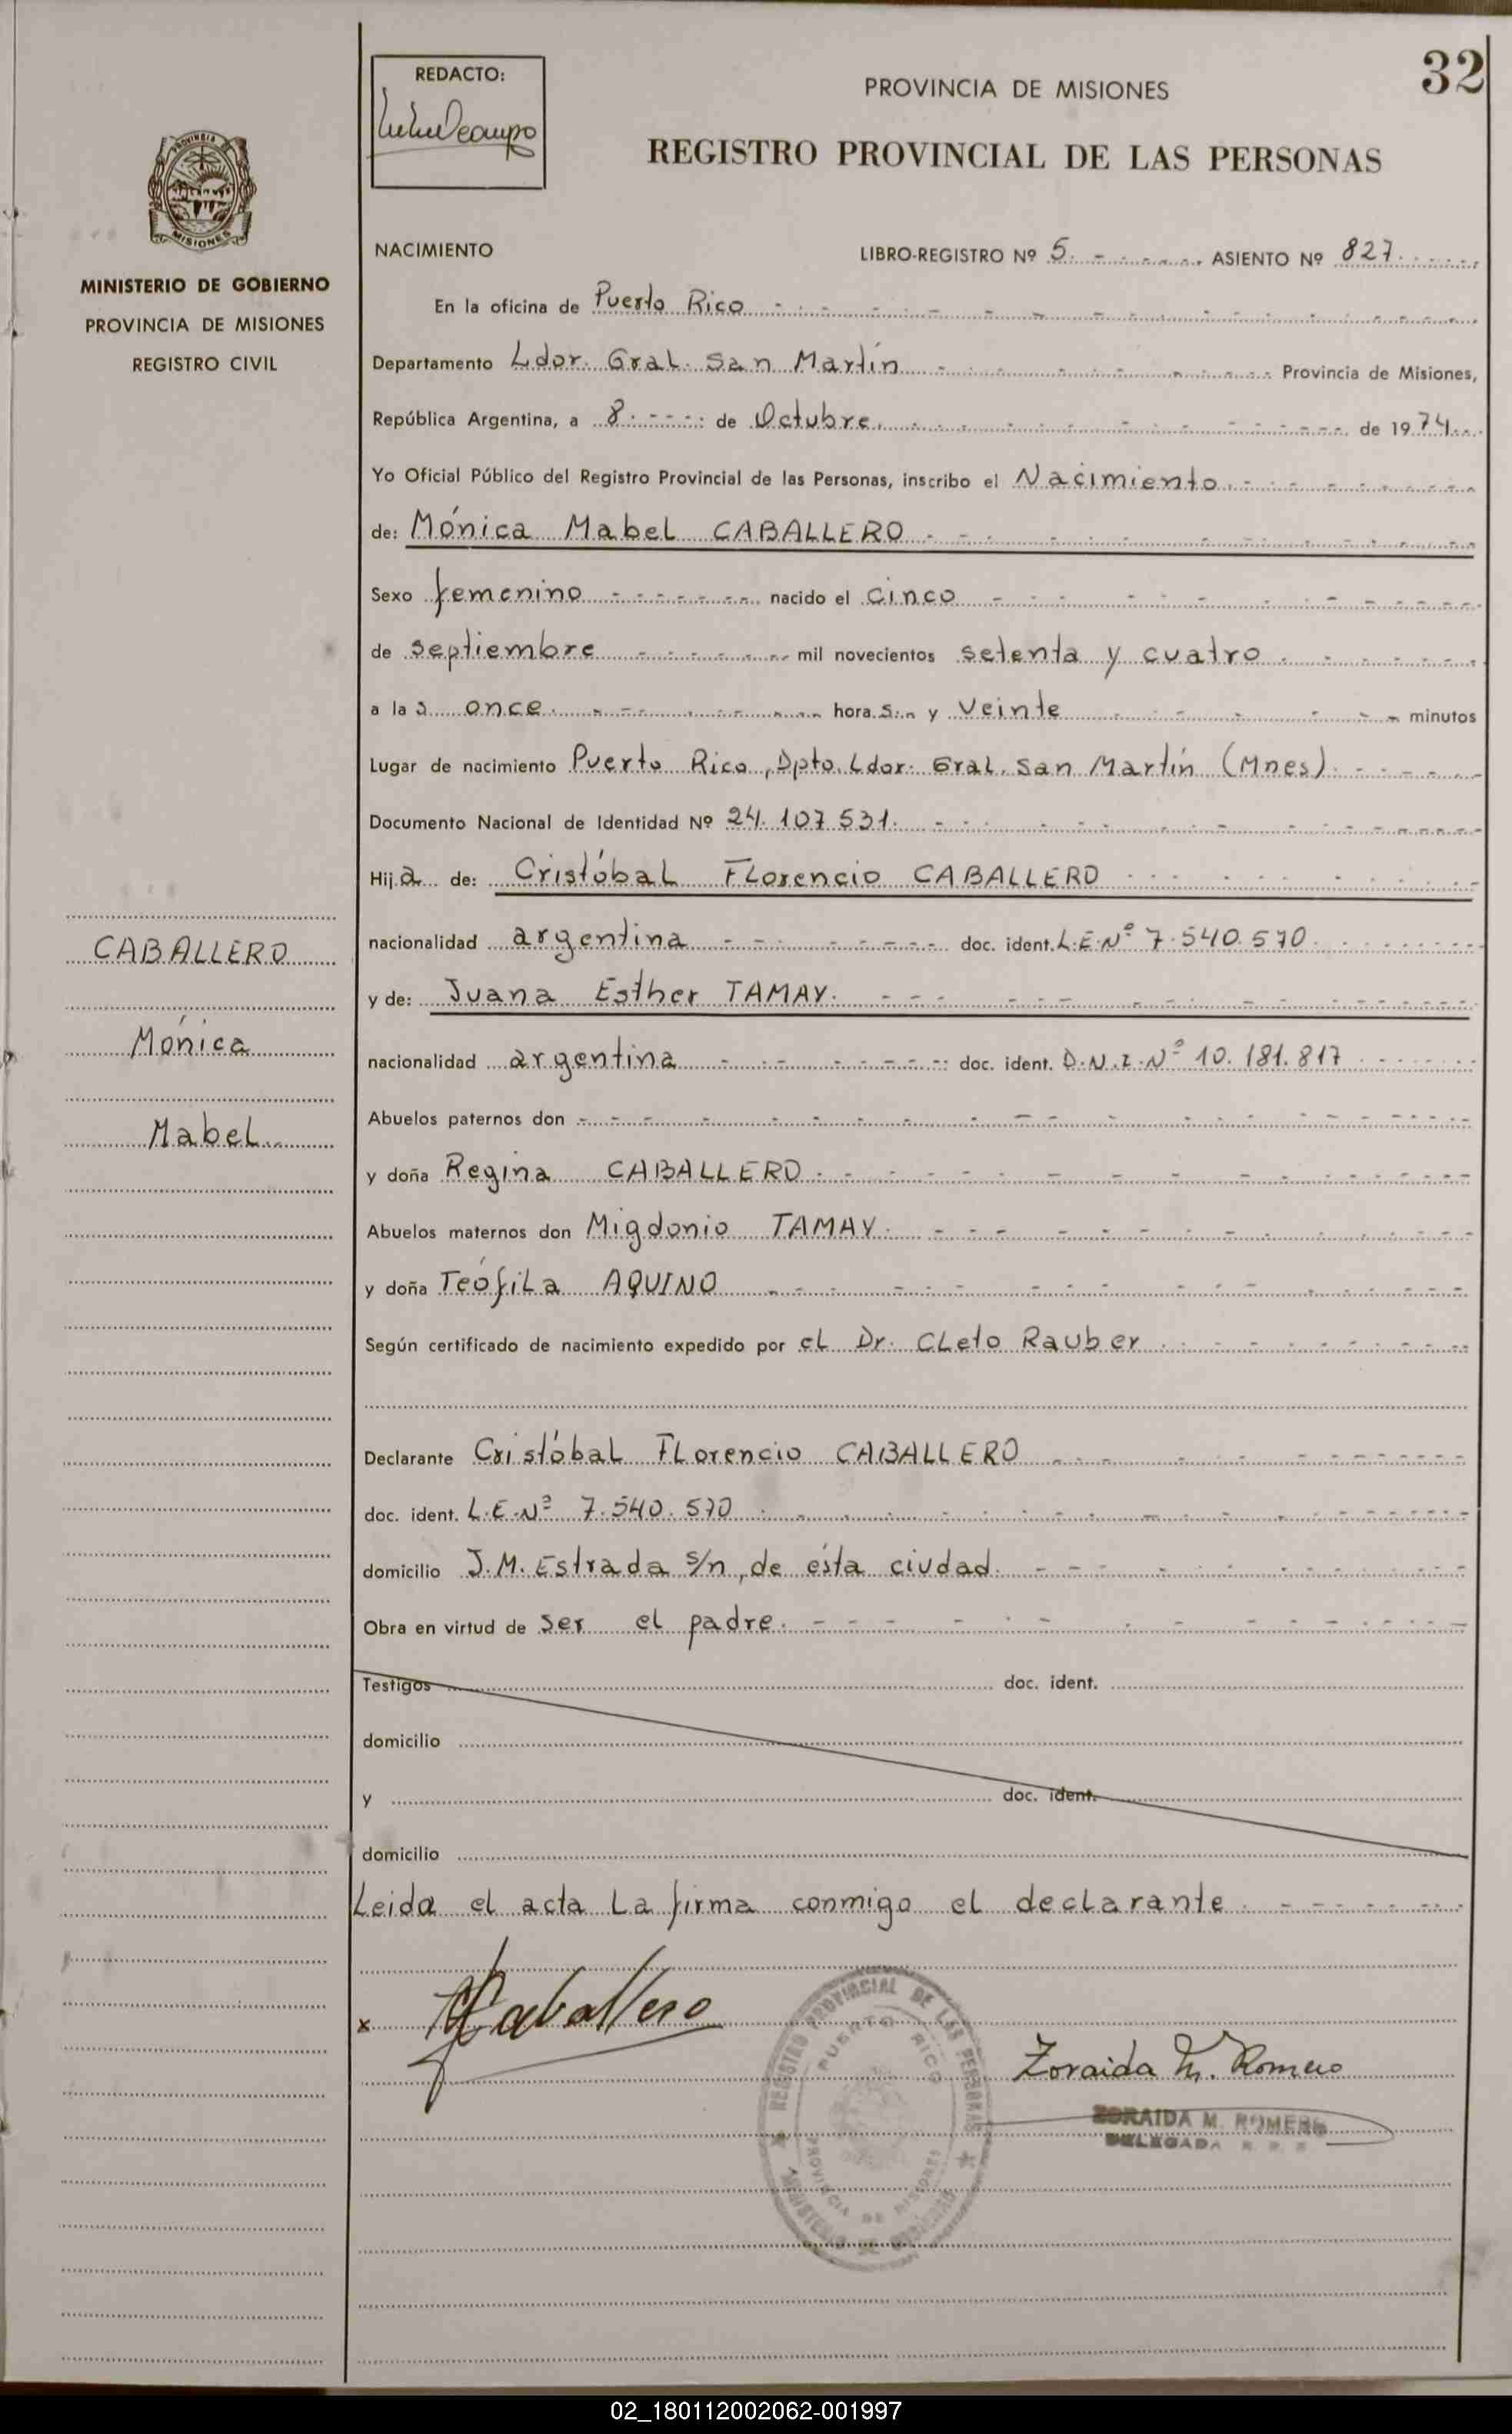 32
REDACTO:
PROVINCIA DE MISIONES
REGISTRO PROVINCIAL DE LAS PERSONAS
PROVINCIA DE
MISIONES
MINISTERIO DE GOBIERNO
PROVINCIA DE MISIONES
REGISTRO CIVIL
NACIMIENTO LIBRO-REGISTRO Nº 5. ASIENTO Nº 827.
En la oficina de Puerto Rico
Departamento Ldor. Gral. San Martín Provincia de Misiones,
República Argentina, a 8. de Octubre. de 1974.
Yo Oficial Público del Registro Provincial de las Personas, inscribo el Nacimiento.
de: Mónica Mabel CABALLERO
Sexo femenino nacido el cinco
de septiembre mil novecientos setenta y cuatro
a las once. horas. y veinte minutos
Lugar de nacimiento Puerto Rico, Dpto. Ldor. Gral. San Martín (Mnes)
Documento Nacional de Identidad Nº 24.107531.
Hija de: Cristóbal Florencio CABALLERO
nacionalidad argentina doc. ident. L.E.Nº 7.540.570.
y de: Juana Esther TAMAY.
nacionalidad argentina doc. ident. D.N.I.Nº 10.181.817
Abuelos paternos don
y doña Regina CABALLERO
Abuelos maternos don Migdonio TAMAY.
y doña Teófila AQUINO
Según certificado de nacimiento expedido por el Dr. Cleto Rauber
Declarante Cristóbal Florencio CABALLERO
doc. ident. L.E.Nº 7.540.570
domicilio J.M. Estrada s/n, de ésta ciudad.
Obra en virtud de ser el padre.
Testigos doc. ident.
domicilio
y doc. ident.
domicilio
Leida el acta la firma conmigo el declarante
CABALLERO
Mónica
Mabel
x Caballero
REGISTRO PROVINCIAL DE LAS PERSONAS
PUERTO RICO
PROVINCIA DE MISIONES
MINISTERIO GOBIERNO
Zoraida M. Romero
ZORAIDA M. ROMERO
DELEGADA R. P. P.
02_180112002062-001997